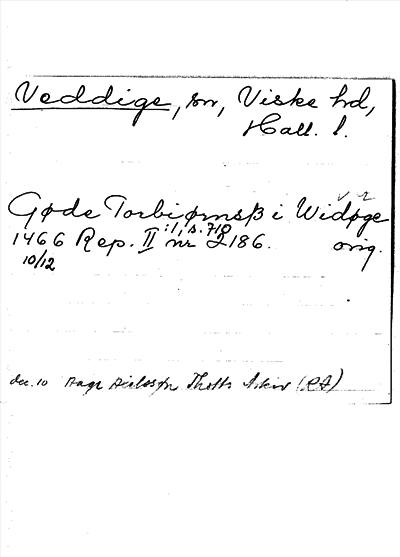 Veddige, sn, Viske hd,
Hall. l.
v r
Gøde Torbiørnsß i Widøge
1466 Rep. II :1, s. 710 nr 2186. orig.
10/12
dec. 10 Aage Axelssøn Thotts Arkiv (RA)